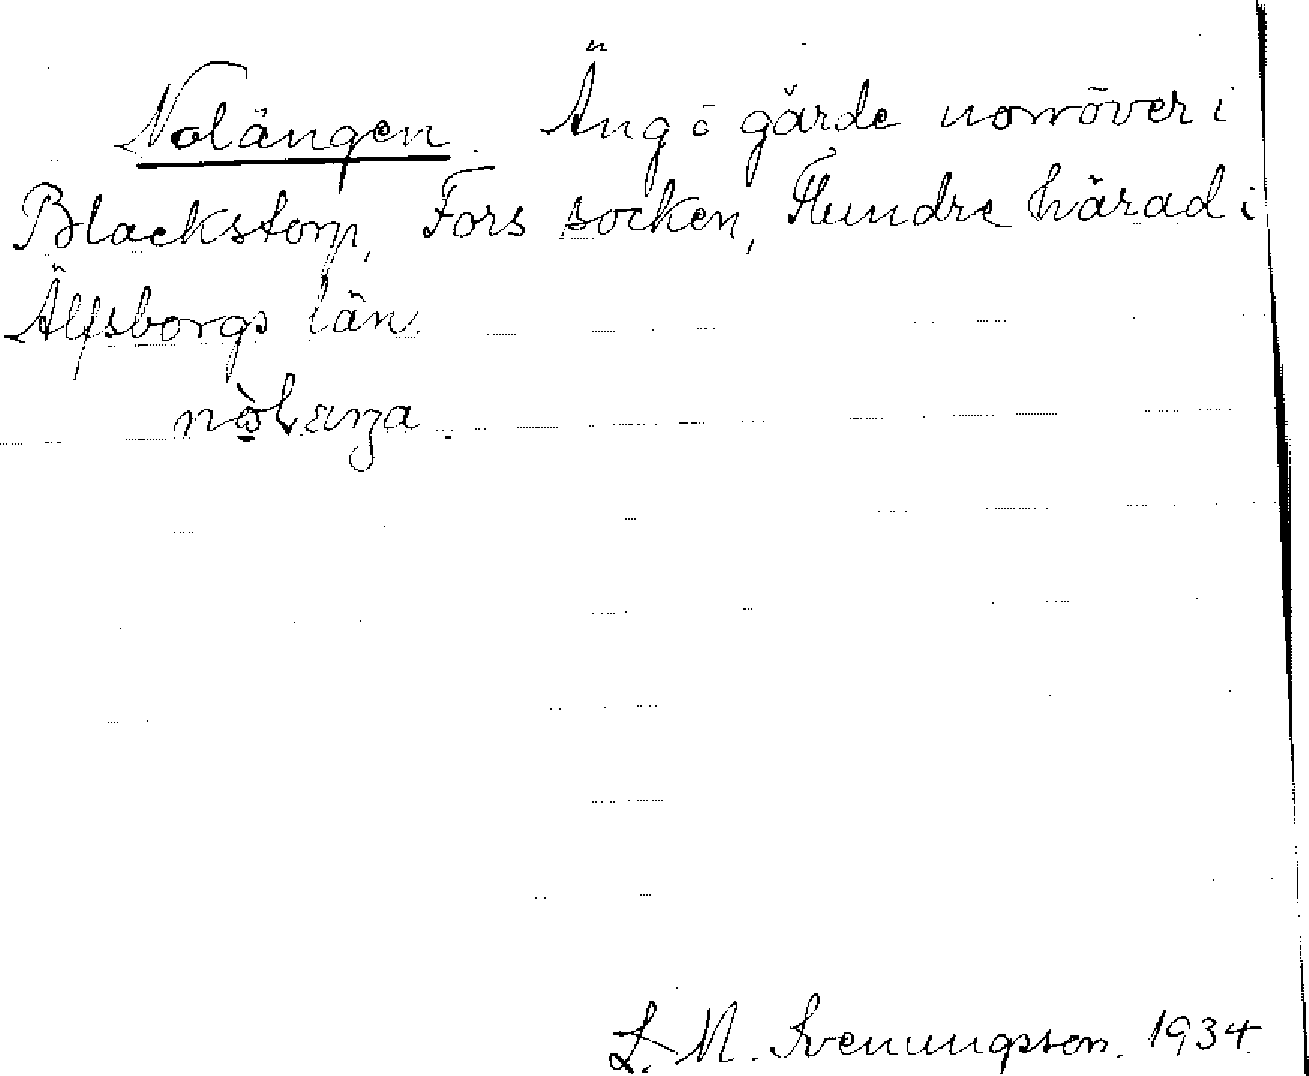 Nolängen. Äng o gärde norröver i
Blackstorp, Fors socken, Flundre härad i
Älfsborgs län.
L. M. Svenungsson. 1934